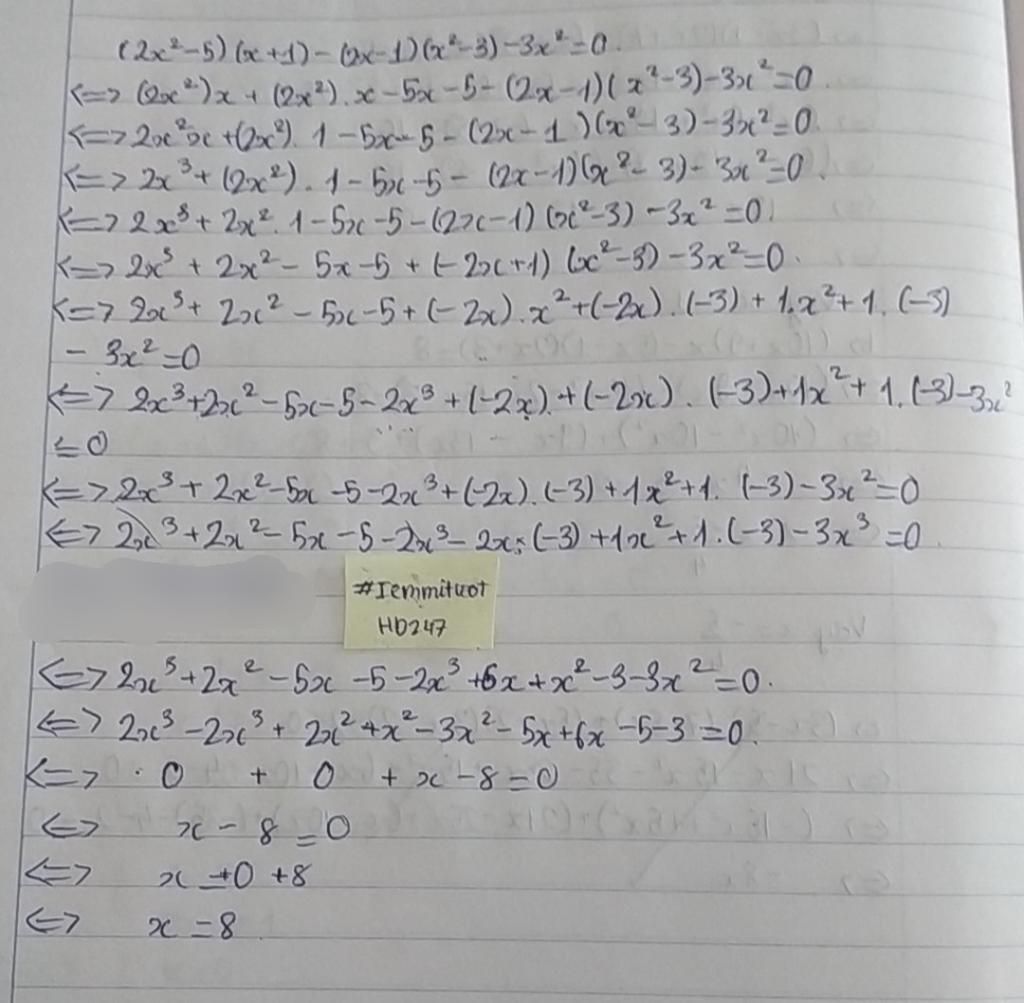 (2x²-5)(x+1)-(2x-1)(x²-3)-3x²=0.
<=> (2x²)x + (2x²).x-5x-5-(2x-1)(x²-3)-3x²=0.
<=> 2x²x+(2x²).1-5x-5-(2x-1)(x²-3)-3x²=0.
<=> 2x³+(2x²).1-5x-5-(2x-1)(x²-3)-3x²=0.
<=> 2x³+2x².1-5x-5-(2x-1)(x²-3)-3x²=0.
<=> 2x³+2x²-5x-5+(-2x+1)(x²-3)-3x²=0.
<=> 2x³+2x²-5x-5+(-2x).x²+(-2x).(-3)+1.x²+1.(-3)
-3x²=0
<=> 2x³+2x²-5x-5-2x³+(-2x).+(-2x).(-3)+1x²+1.(-3)-3x²
=0
<=> 2x³+2x²-5x-5-2x³+(-2x).(-3)+1x²+1.(-3)-3x²=0
<=> 2x³+2x²-5x-5-2x³-2x.(-3)+1x²+1.(-3)-3x³=0.
#Iemmituot
HD247
<=> 2x³+2x²-5x-5-2x³+6x+x²-3-3x²=0.
<=> 2x³-2x³+2x²+x²-3x²-5x+6x-5-3=0.
<=> 0 + 0 + x-8=0
<=> x-8=0
<=> x=0+8
<=> x=8.